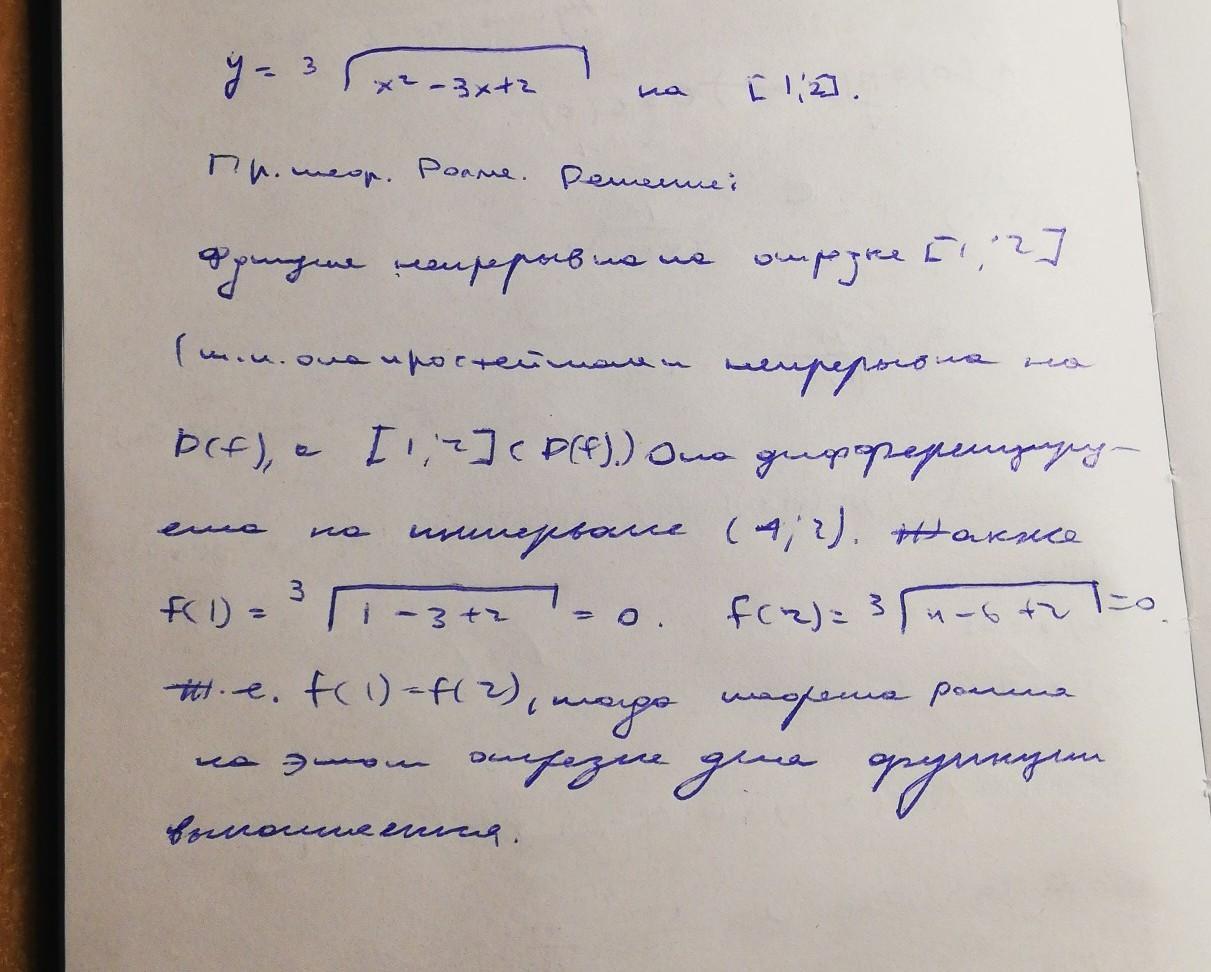 y = ∛(x² - 3x + 2) на [1; 2].
Пр. теор. Ролля. Решение:
Функция непрерывна на отрезке [1; 2]
(т.к. она простейшая и непрерывна на
D(f), а [1; 2] ⊂ D(f).) Она дифференциру-
ема на интервале (1; 2). Также
f(1) = ∛(1 - 3 + 2) = 0. f(2) = ∛(4 - 6 + 2) = 0.
Т.е. f(1) = f(2), тогда теорема Ролля
на этом отрезке для функции
выполняется.